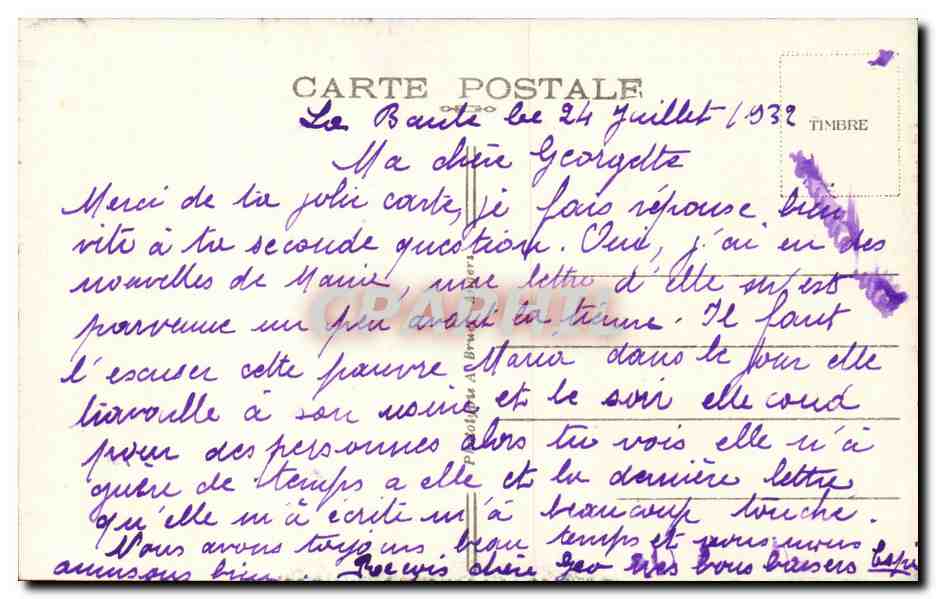 CARTE POSTALE
La Baule le 24 Juillet 1932
TIMBRE
Ma chère Georgette
Merci de ta jolie carte, je fais réponse bien
vite à ta seconde question. Oui, j'ai eu des
nouvelles de Maria, une lettre d'elle m'est
parvenue un peu avant la tienne. Il faut
l'escuser cette pauvre Maria dans le jour elle
travaille à son usine et le soir elle coud
pour des personnes alors tu vois elle n'à
guère de temps a elle et la dernière lettre
qu'elle m'à écrite m'à beaucoup touché.
Nous avons toujours beau temps et nous nous
amusons bien. Reçois chère Geo mes bons baisers
CPARAMA
Phototypie A. Bruel, Angers